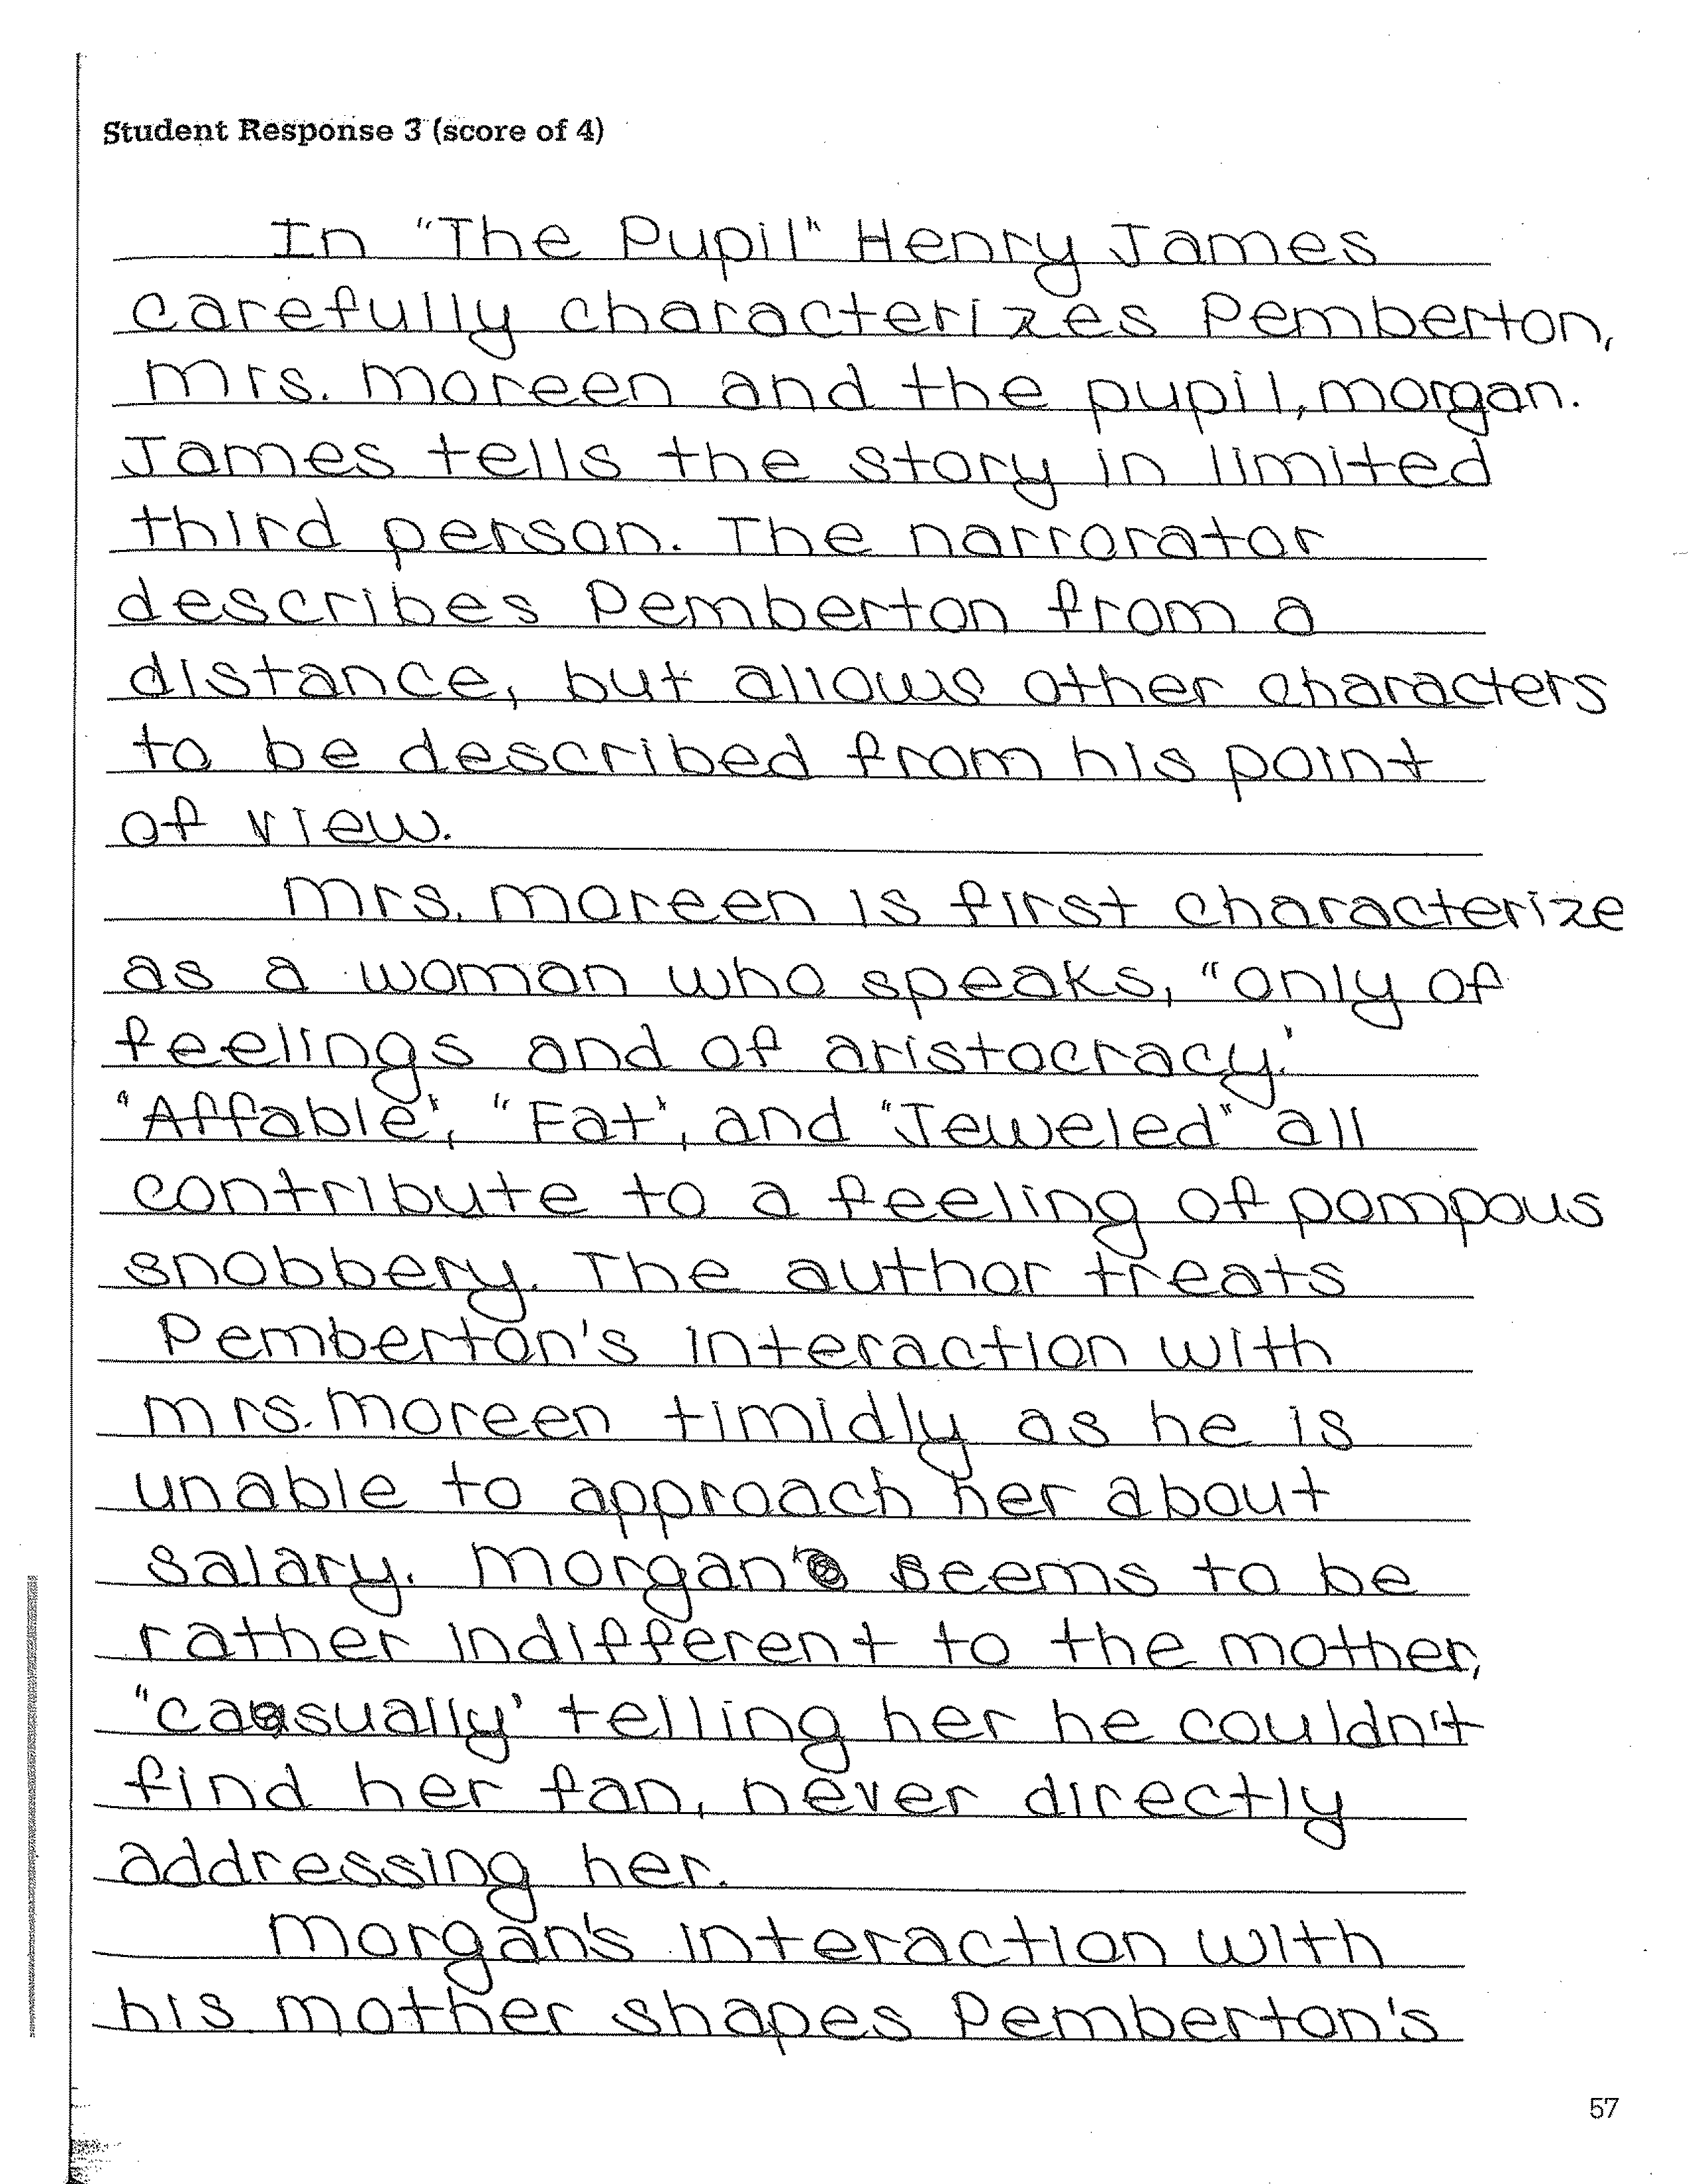 Student Response 3 (score of 4)
In "The Pupil" Henry James
carefully characterizes Pemberton,
Mrs. Moreen and the pupil, Morgan.
James tells the story in limited
third person. The narrorator
describes Pemberton from a
distance, but allows other characters
to be described from his point
of view.
Mrs. Moreen is first characterize
as a woman who speaks, "only of
feelings and of aristocracy."
"Affable", "Fat", and "Jeweled" all
contribute to a feeling of pompous
snobbery. The author treats
Pemberton's interaction with
Mrs. Moreen timidly as he is
unable to approach her about
salary. Morgan seems to be
rather indifferent to the mother,
"casually" telling her he couldn't
find her fan, never directly
addressing her.
Morgan's interaction with
his mother shapes Pemberton's
57